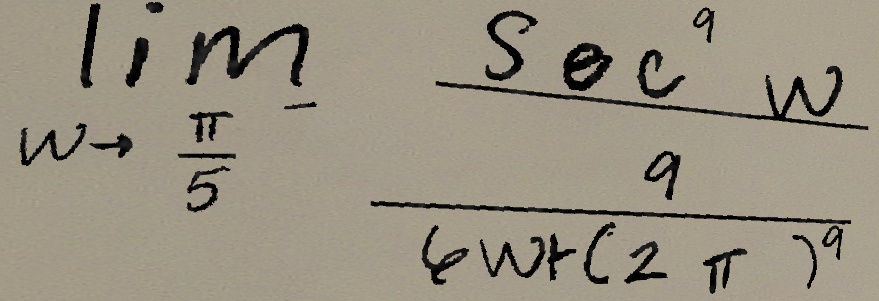 lim w→π/5⁻ ((sec⁹ w)/9)/(6w+(2π)⁹)